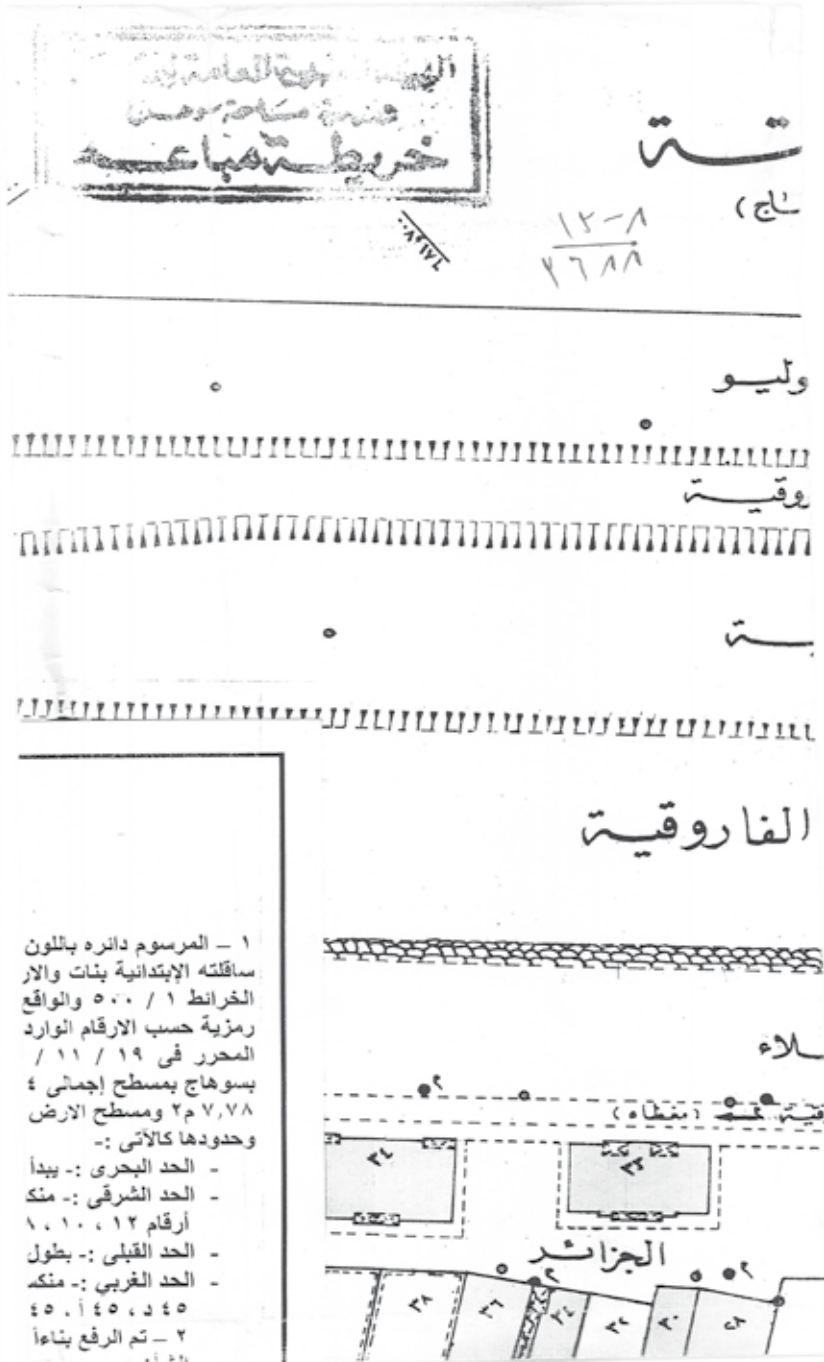 خريطة مباعه
ـتة
ـتاج)
١٢-٨
٢٦٨٨
وليو
ـروقية
ـبة
الفاروقية
١ – المرسوم دائره باللون
ساقلته الإبتدائية بنات والار
الخرائط ١ / ٥٠٠ والواقع
رمزية حسب الارقام الوارد
المحرر فى ١٩ / ١١ /
بسوهاج بمسطح إجمالى ٤
٧,٧٨ م٢ ومسطح الارض
وحدودها كالآتى :-
- الحد البحرى :- يبدأ
- الحد الشرقى :- منك
أرقام ١٢ ، ١٠ ، ٨
- الحد القبلى :- بطول
- الحد الغربي :- منكـ
٤٥ د ، ٤٥ أ ، ٤٥
٢ – تم الرفع بناءا
ـلاء
٢
ـقية (مغطاه)
٣٤
٣٣
الجزائر
٢
٢
٣٨
٣٦
٣٤
٣٢
٣٠
٢٨